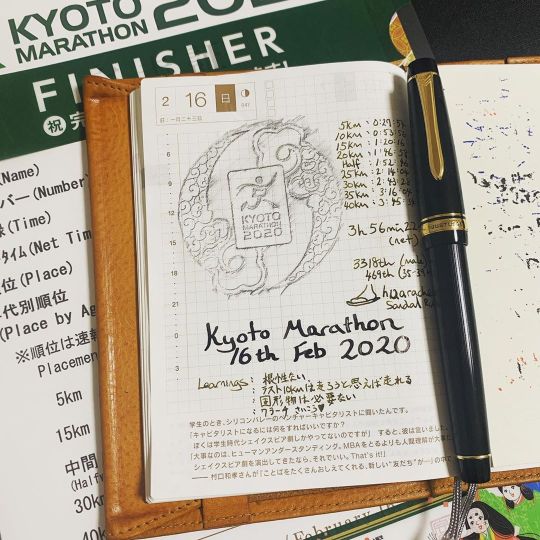 KYOTO
MARATHON 202
FINISHER
祝 完
(Name)
バー(Number)
(Time)
タイム(Net Time
位(Place)
代別順位
(Place by Ag
※順位は速報
Placemen
5km
15km
中間
(Half
30k
2 16 日
旧:一月二十三日
047
6
9
12
15
18
21
0
3
KYOTO
MARATHON
2020
5km : 0:27:5
10km : 0:53:5
15km : 1:20:16
20km : 1:46:5
Half : 1:52:4
25km : 2:14:0
30km : 2:43:2
35km : 3:16:0
40km : 3:45:3
3h 56min 22
(net)
3318th (male)
469th (35-39
huarache
Sandal Ru
Kyoto Marathon
16th Feb 2020
Learnings : 根性ない
ラスト10kmは走ろうと思えば走れる
固形物は必要ない
ワラーチ さいこう
学生のとき、シリコンバレーのベンチャーキャピタリストに聞いたんです。
「キャピタリストになるには何をすればいいですか?
ぼくは学生時代シェイクスピア劇しかやってないのですが」 すると、彼は言いました。
「大事なのは、ヒューマンアンダースタンディング。MBAをとるよりも人間理解が大事だ
シェイクスピア劇を演出してきたなら、それでいい。That's it!」
── 村口和孝さんが『ことばをたくさんおしえてくれる、新しい“友だち”が…』の中で
February